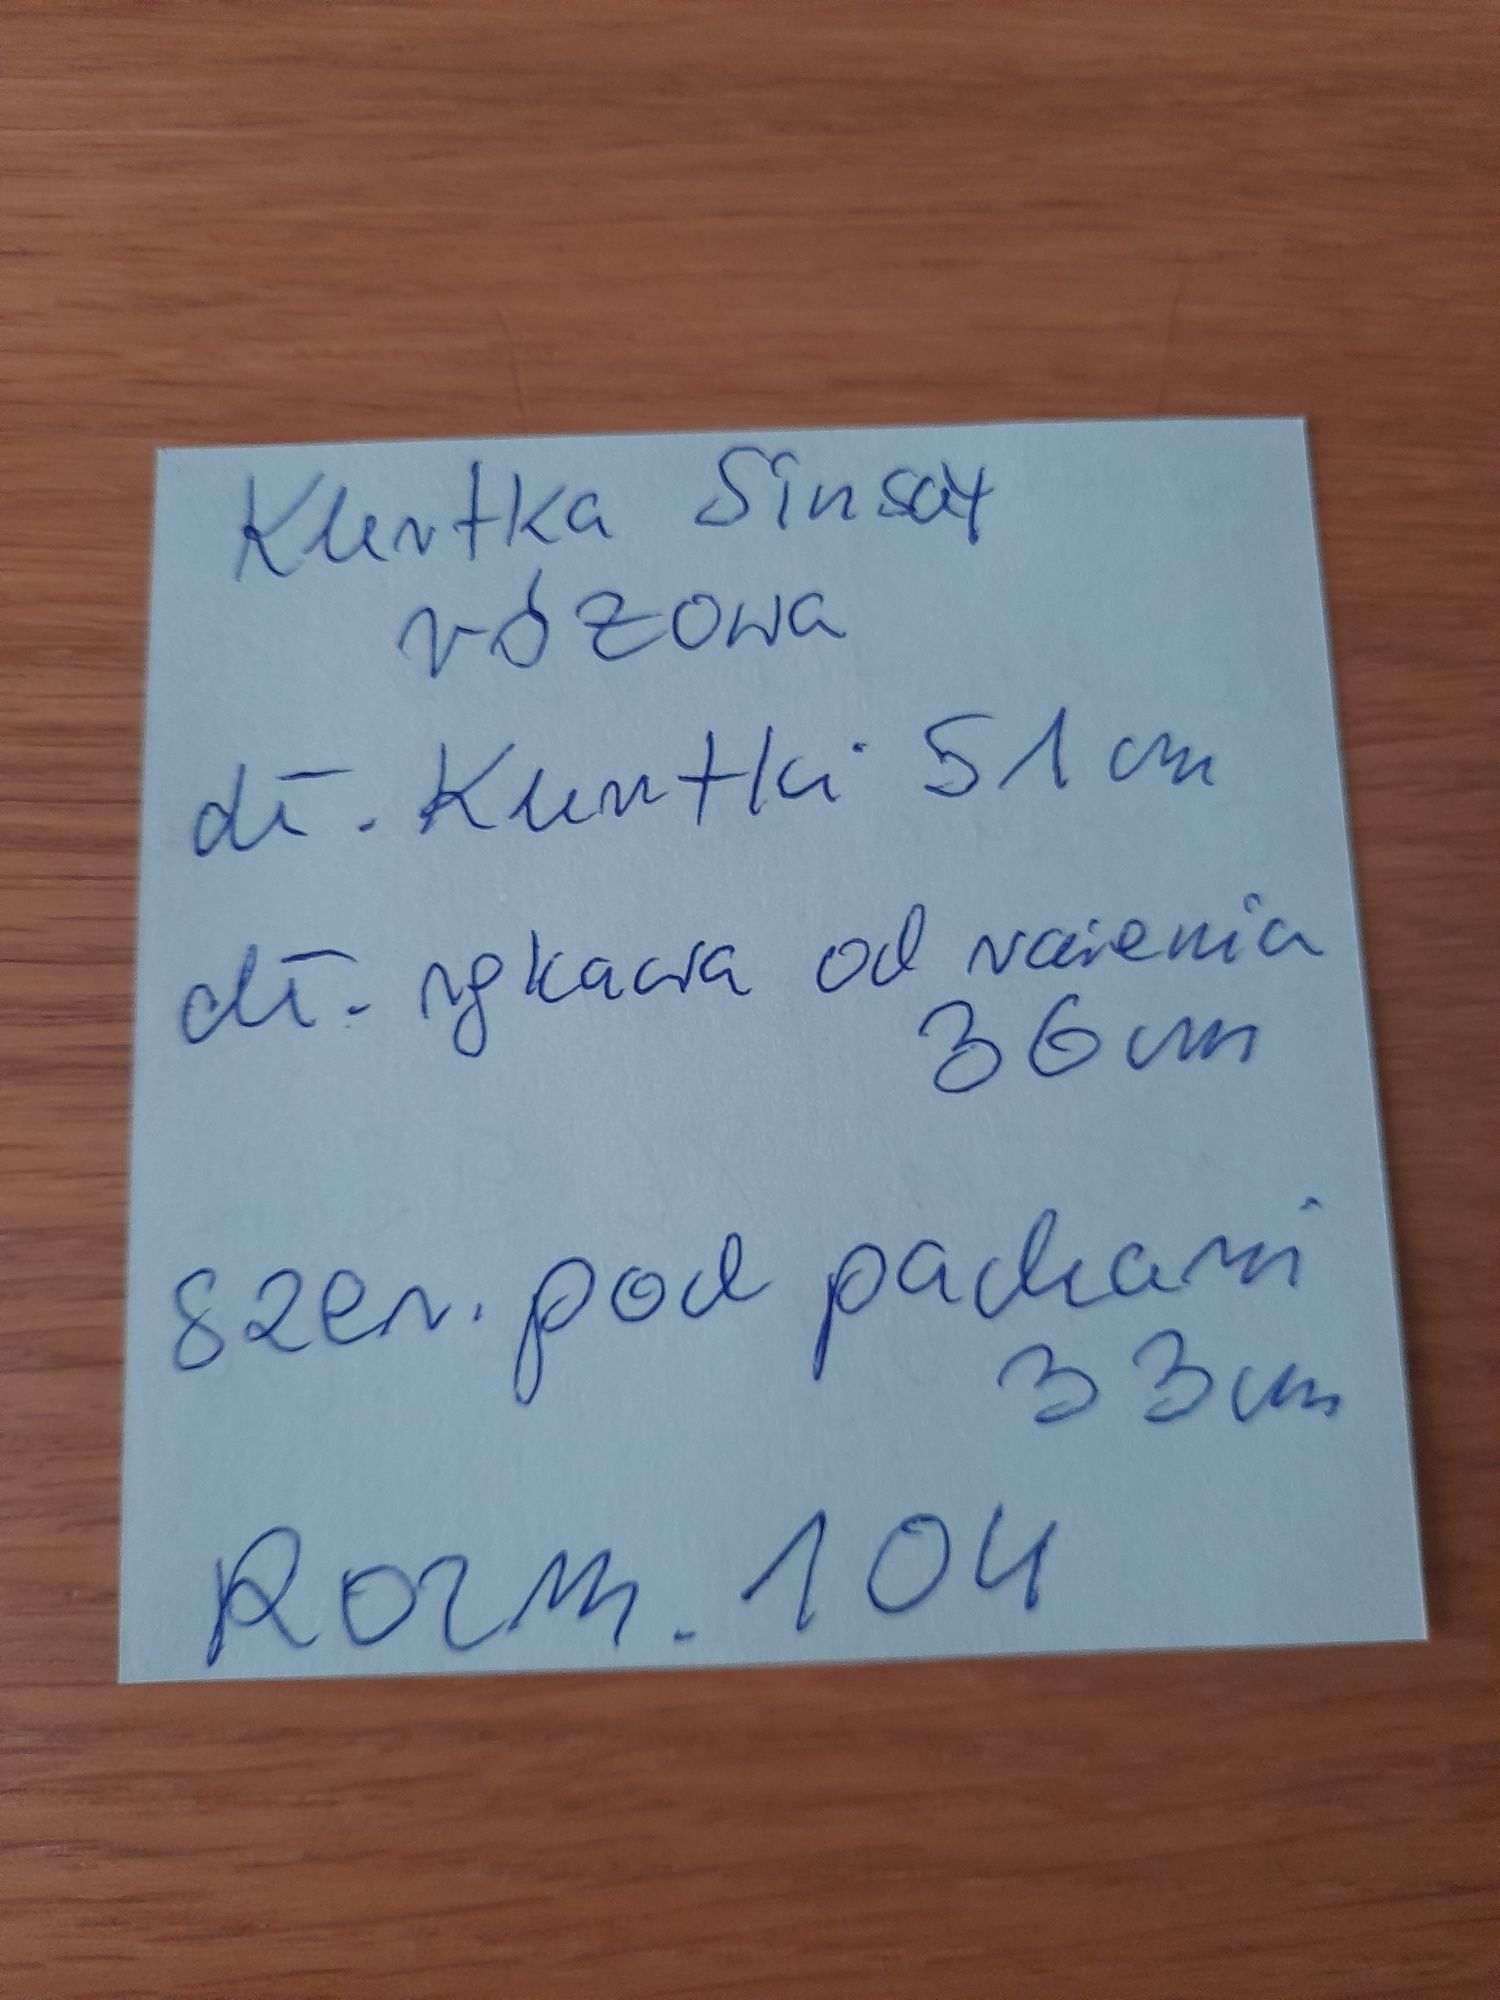 Kurtka Sinsay
różowa
dł. Kurtki 51 cm
dł. rękawa od ramienia
36 cm
szer. pod pachami
33 cm
Rozm. 104